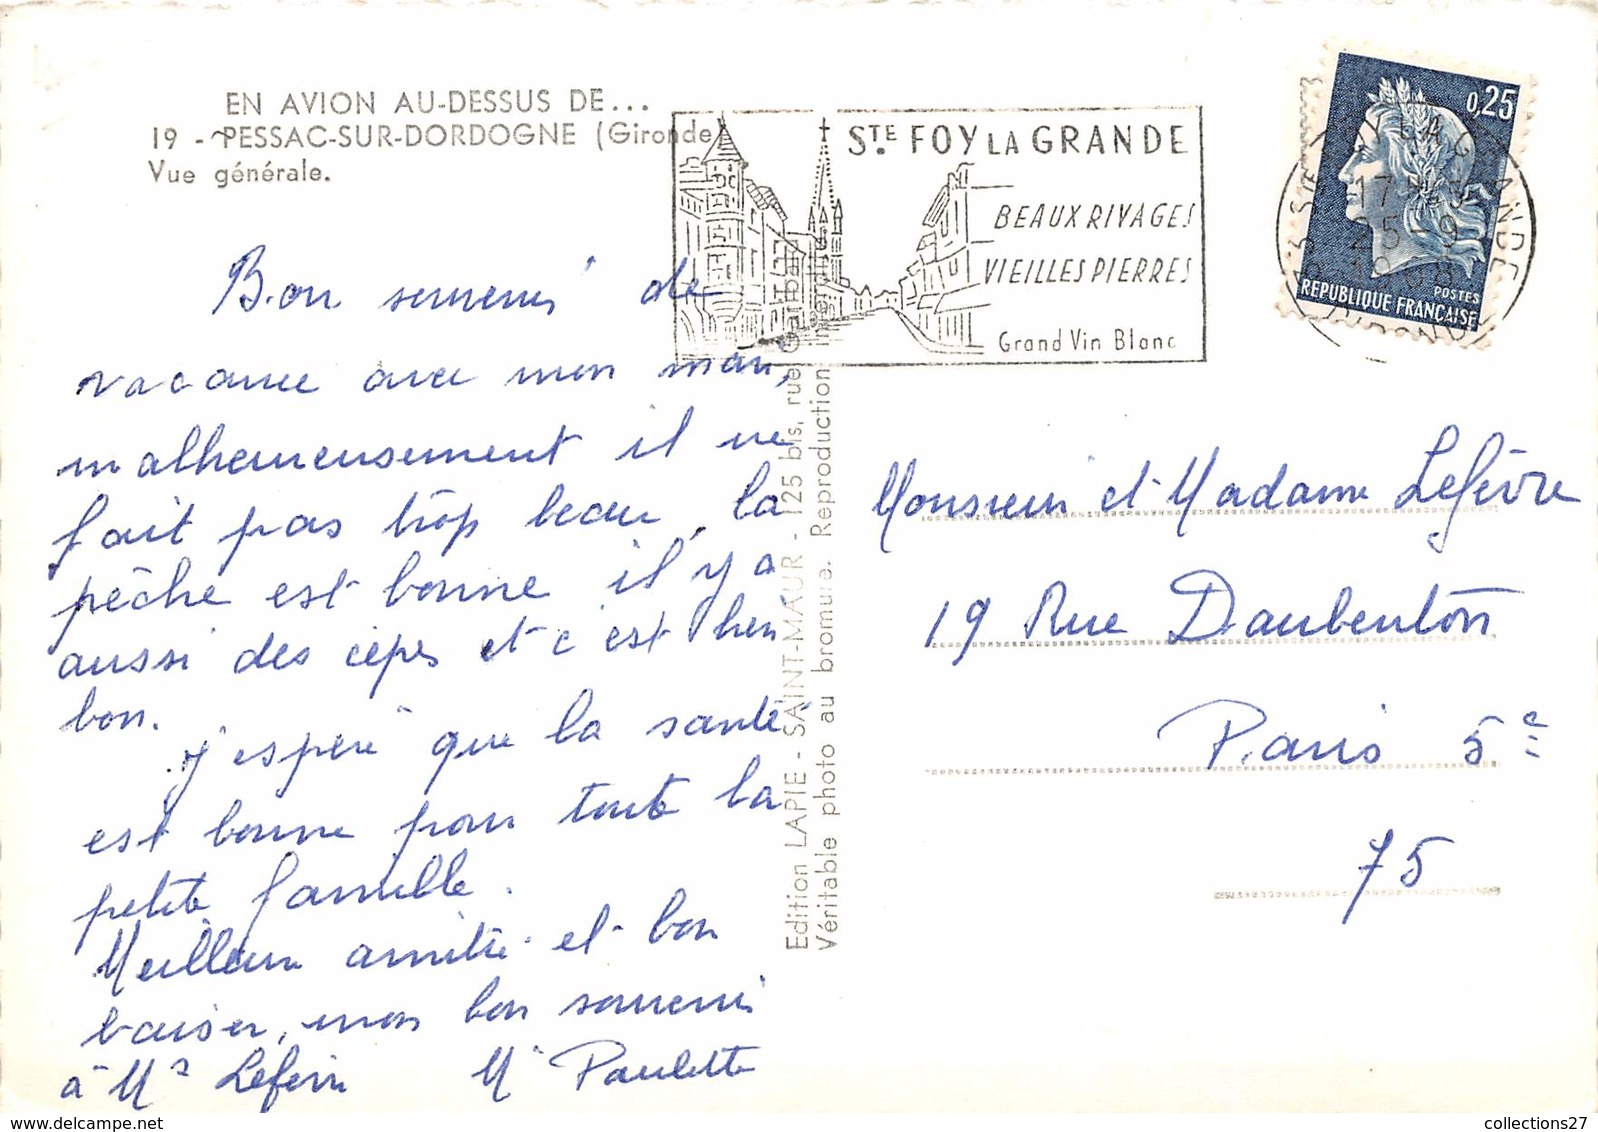 EN AVION AU-DESSUS DE...
19 - PESSAC-SUR-DORDOGNE (Gironde)
Vue générale.
Bon souvenir de
vacance avec mon mari,
malheureusement il ne
fait pas trop beau, la
pêche est bonne il y a
aussi des cèpes et c'est bien
bon.
j'espère que la santé
est bonne pour toute la
petite famille.
Meilleure amitié et bon
baiser, mon bon souvenir
à Mr Lefèvre Me Paulette
Edition LAPIE - SAINT-MAUR - 125 bis, rue Garibaldi
Véritable photo au bromure. Reproduction interdite
STE FOY LA GRANDE
BEAUX RIVAGES
VIEILLES PIERRES
Grand Vin Blanc
0,25
POSTES
REPUBLIQUE FRANÇAISE
33 STE FOY LA GRANDE
17H
25-9
1968
GIRONDE
Monsieur et Madame Lefèvre
19 Rue Daubenton
Paris 5e
75
collections27